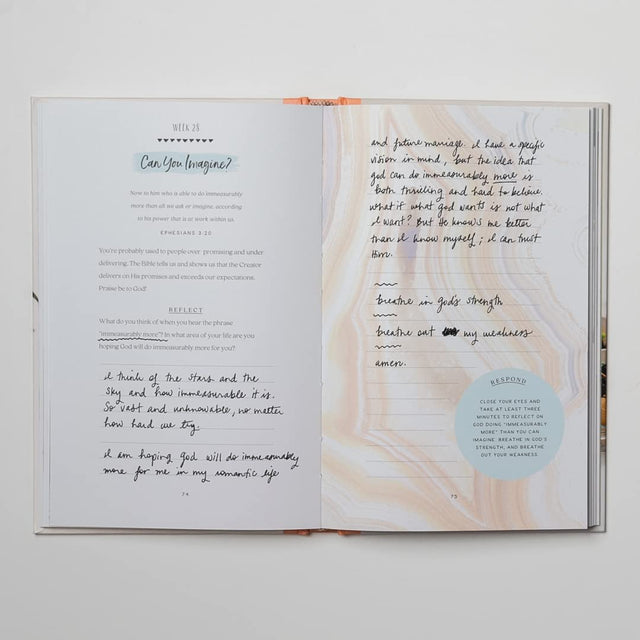 WEEK 28
Can You Imagine?
Now to him who is able to do immeasurably
more than all we ask or imagine, according
to his power that is at work within us.
EPHESIANS 3:20
You're probably used to people over promising and under
delivering. The Bible tells us and shows us that the Creator
delivers on His promises and exceeds our expectations.
Praise be to God!
REFLECT
What do you think of when you hear the phrase
"immeasurably more"? In what area of your life are you
hoping God will do immeasurably more for you?
I think of the stars and the
sky and how immeasurable it is.
So vast and unknowable, no matter
how hard we try.
I am hoping God will do immeasurably
more for me in my romantic life
74
and future marriage. I have a specific
vision in mind, but the idea that
god can do immeasurably more is
both thrilling and hard to believe.
what if what god wants is not what
I want? But He knows me better
than I know myself; I can trust
Him.
breathe in god's strength
breathe out my weakness
amen.
RESPOND
CLOSE YOUR EYES AND
TAKE AT LEAST THREE
MINUTES TO REFLECT ON
GOD DOING "IMMEASURABLY
MORE" THAN YOU CAN
IMAGINE. BREATHE IN GOD'S
STRENGTH, AND BREATHE
OUT YOUR WEAKNESS.
75